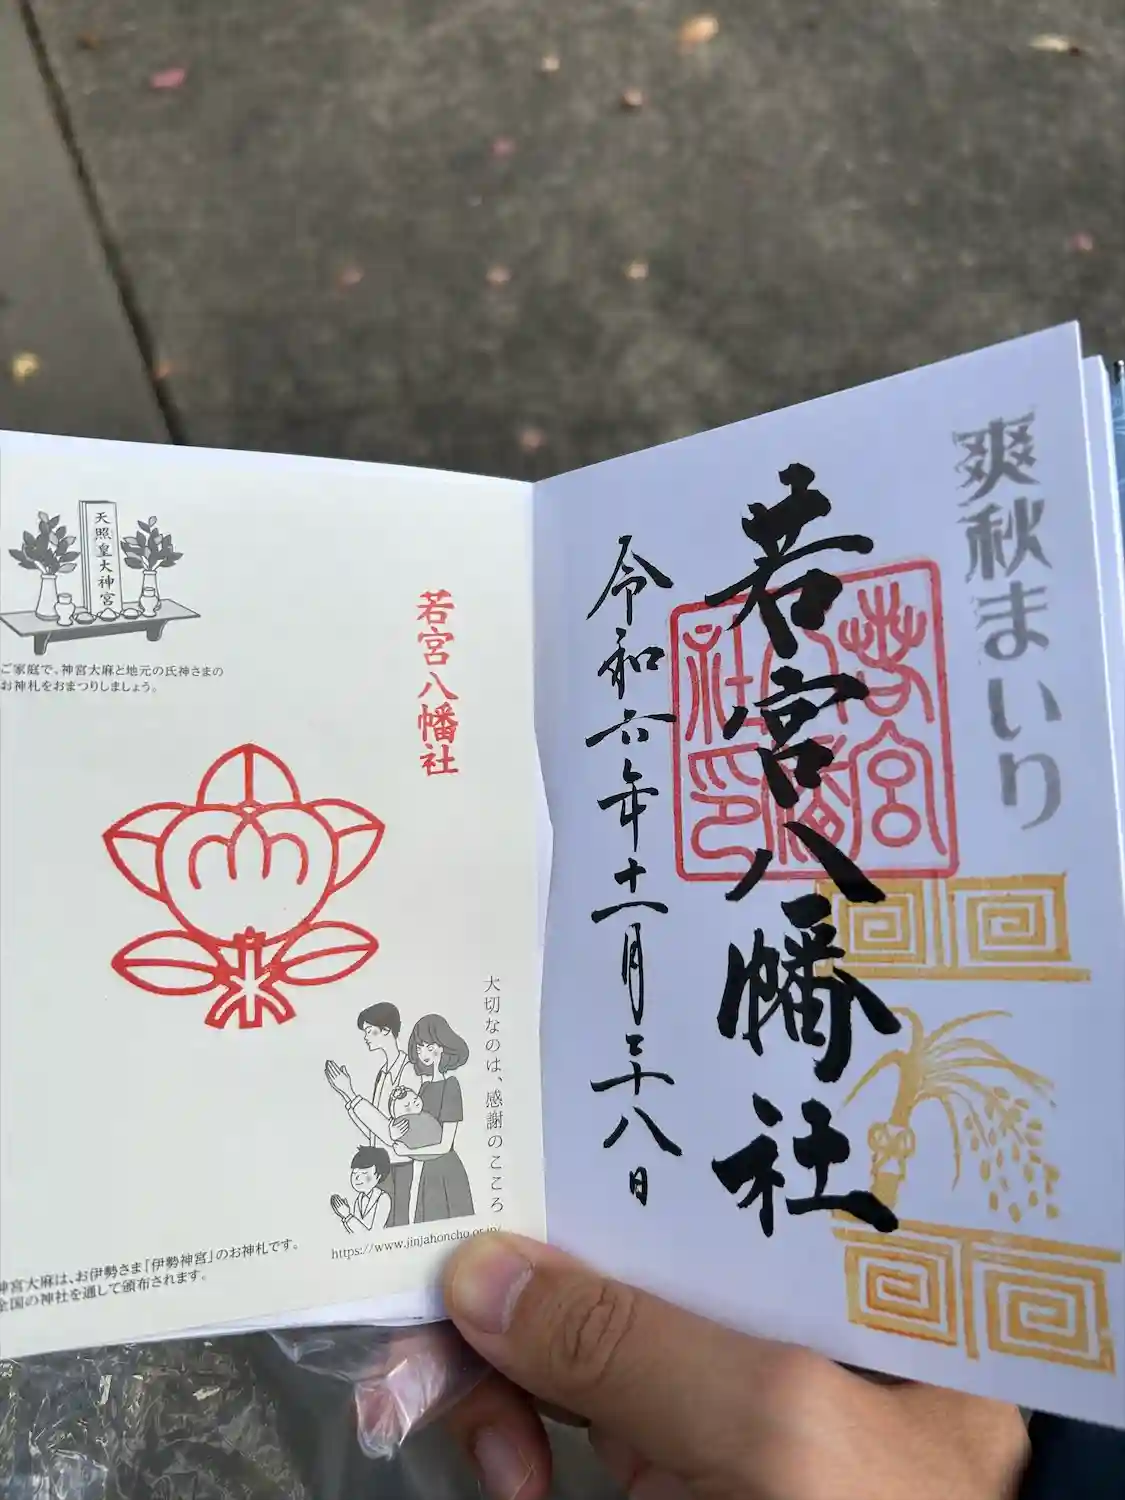 爽秋まいり
若宮八幡社
若宮八幡社印
令和六年十一月二十八日
天照皇大神宮
ご家庭で、神宮大麻と地元の氏神さまの
お神札をおまつりしましょう。
若宮八幡社
大切なのは、感謝のこころ
https://www.jinjahoncho.or.jp/
神宮大麻は、お伊勢さま「伊勢神宮」のお神札です。
全国の神社を通して頒布されます。